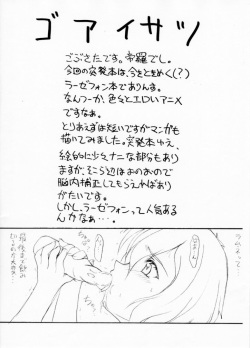 ゴアイサツ
ごぶさたです。帝羅でし。
今回の突発本は、今をときめく(？)
ラーゼフォン本でありんす。
なんつーか、色々とエロいアニメ
ですなぁ。
とりあえずは短いですがマンガも
描いてみました。突発本ゆえ、
絵的に少々ナニな部分もあり
ますが、そこら辺はおのおので
脳内補正してもらえればあり
がたいです。
しかし、ラーゼフォンって人気ある
んかなぁ…。